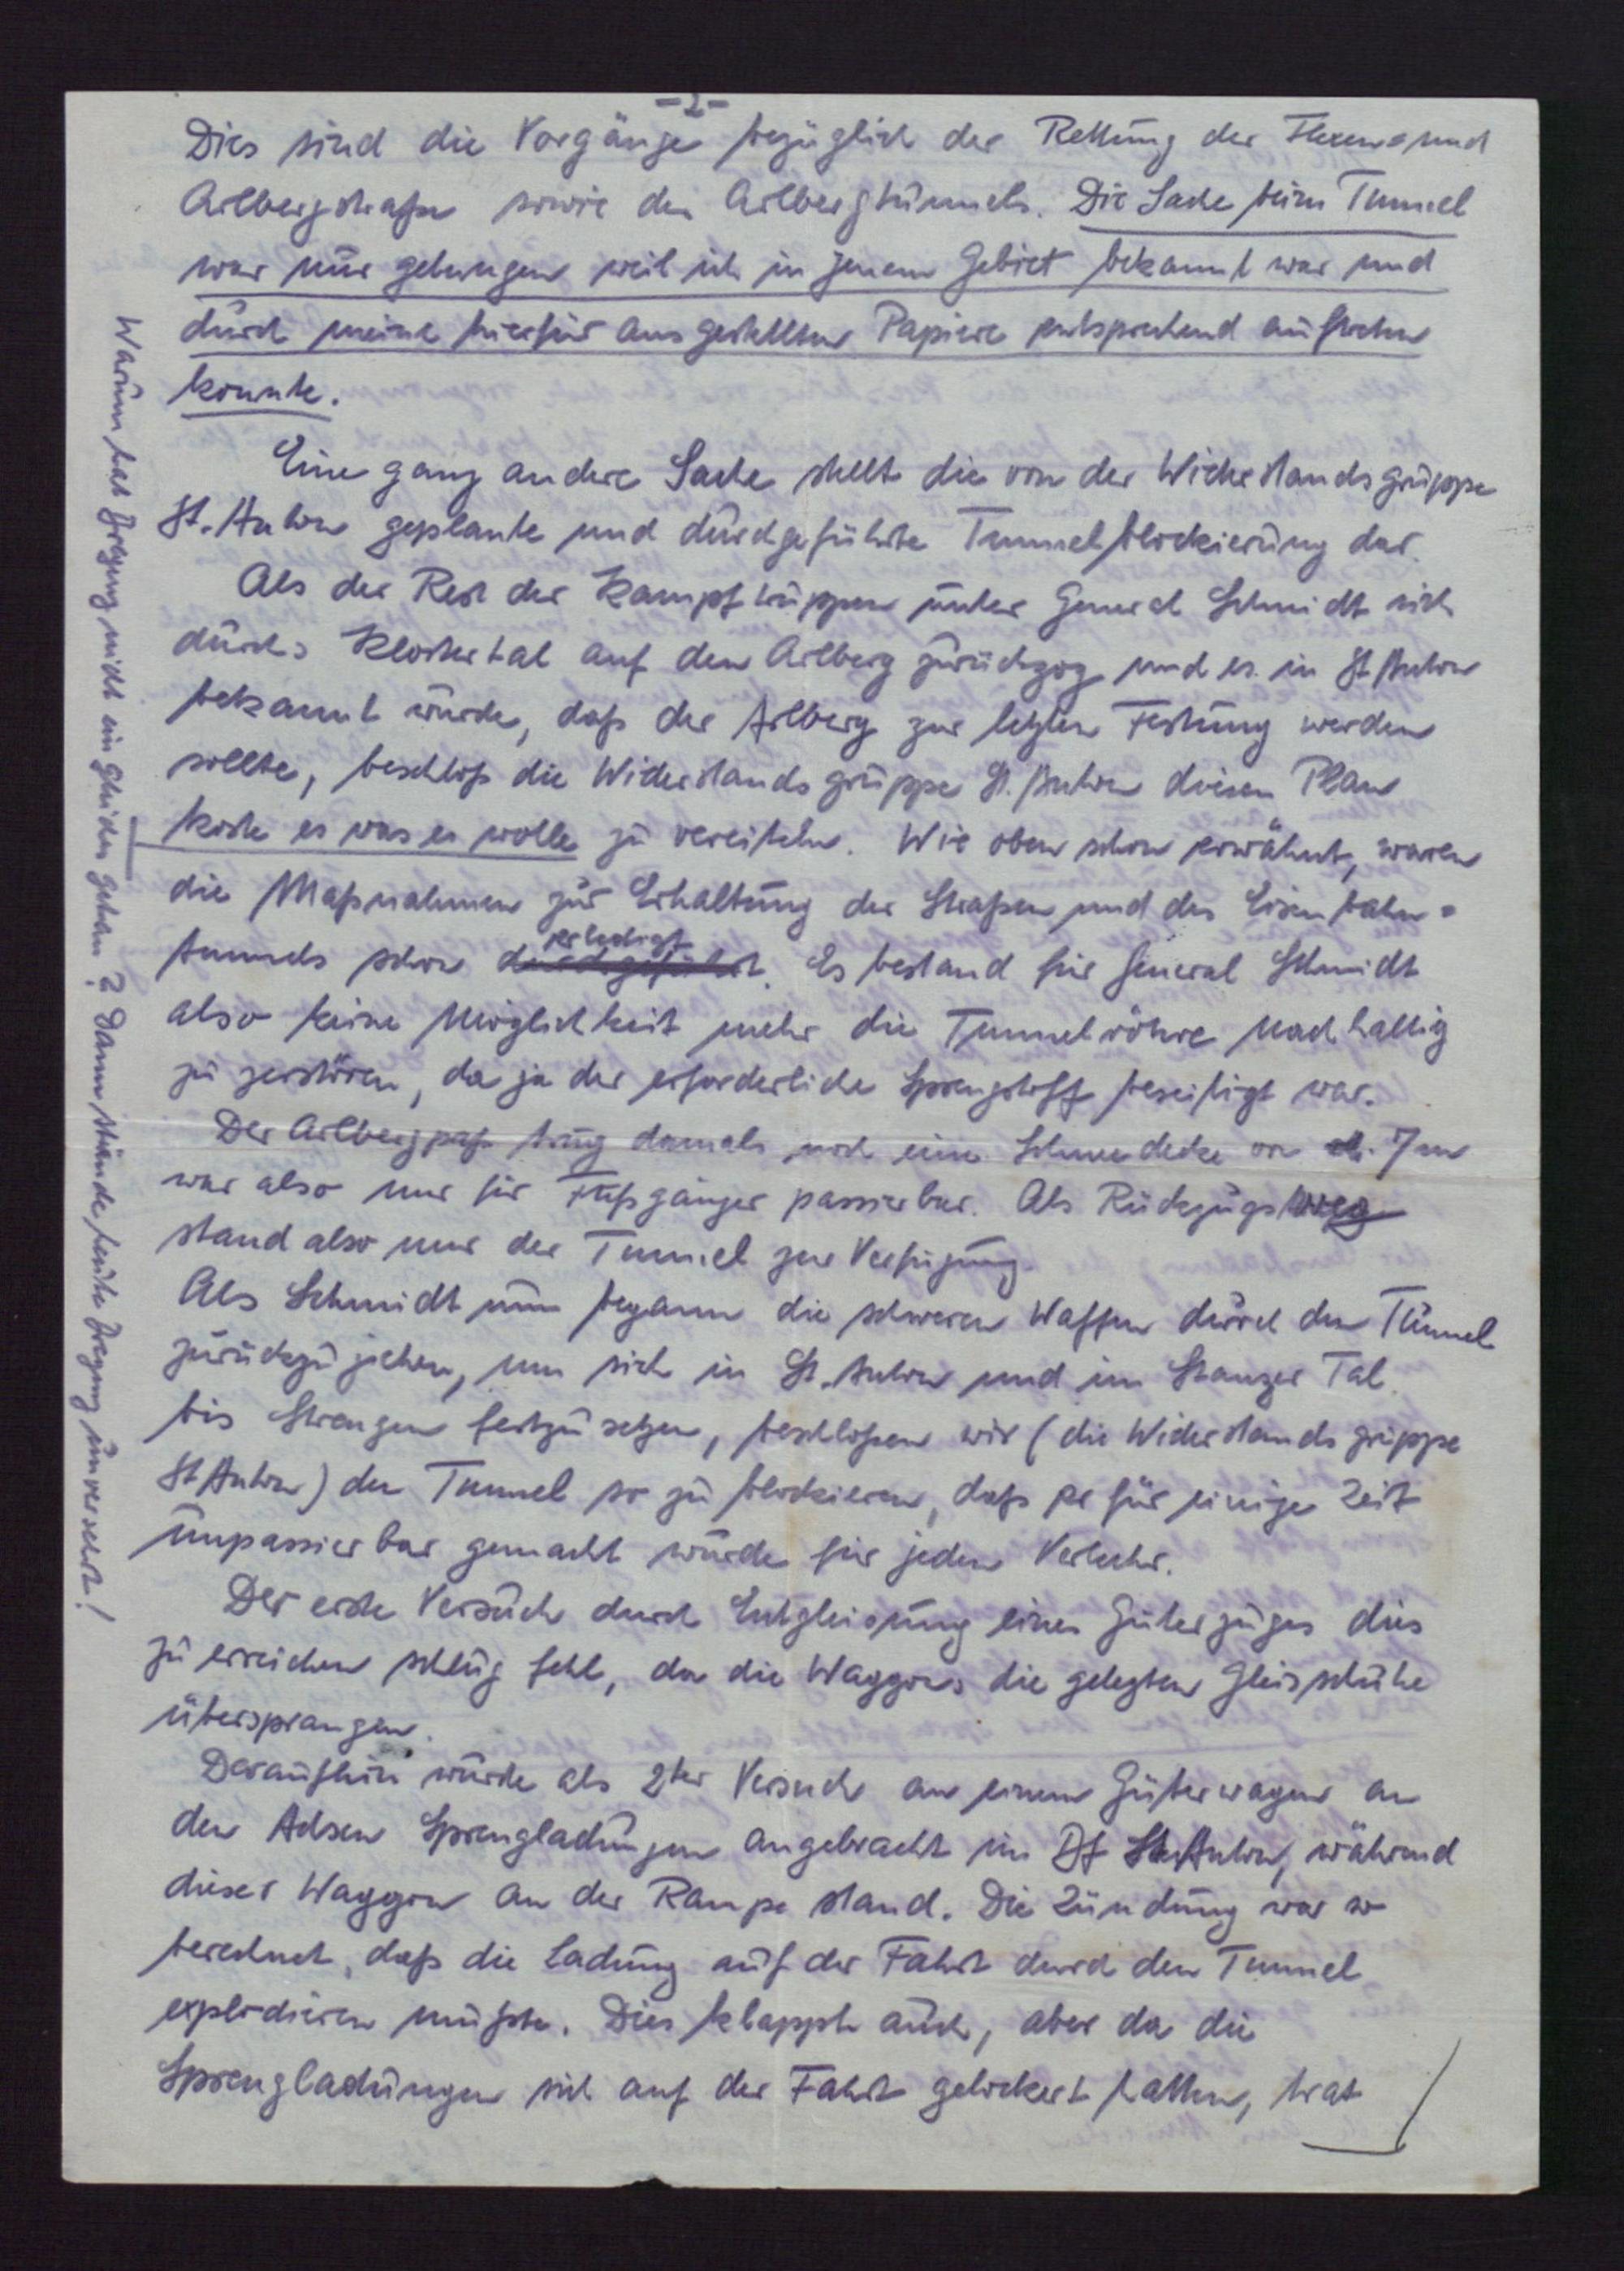 -2-
Dies sind die Vorgänge bezüglich der Rettung der Flexen- und
Arlbergstraße sowie des Arlbergtunnels. Die Sache beim Tunnel
war nur gelungen weil ich in jenem Gebiet bekannt war und
durch meine hierfür ausgestellten Papiere entsprechend auftreten
konnte.
Eine ganz andere Sache stellt die von der Widerstandsgruppe
St. Anton geplante und durchgeführte Tunnelblockierung dar.
Als der Rest der Kampftruppen unter General Schmidt sich
durchs Klostertal auf den Arlberg zurückzog und es in St Anton
bekannt wurde, daß der Arlberg zur letzten Festung werden
sollte, beschloß die Widerstandsgruppe St. Anton diesen Plan
koste es was es wolle zu vereiteln. Wie oben schon erwähnt, waren
die Maßnahmen zur Erhaltung der Straßen und des Eisenbahn=
tunnels schon durchgeführt erledigt. Es bestand für General Schmidt
also keine Möglichkeit mehr die Tunnelröhre nachhaltig
zu zerstören, da ja der erforderliche Sprengstoff beseitigt war.
Der Arlbergpaß trug damals noch eine Schneedecke von 7 m
war also nur für Fußgänger passierbar. Als Rückzugsweg
stand also nur der Tunnel zur Verfügung.
Als Schmidt nun begann die schweren Waffen durch den Tunnel
zurückzuziehen, um sich in St. Anton und im Stanzer Tal
bis Strengen festzusetzen, beschloßen wir (die Widerstandsgruppe
St Anton) den Tunnel so zu blockieren, daß er für einige Zeit
unpassierbar gemacht würde für jeden Verkehr.
Der erste Versuch durch Entgleisung eines Güterzuges dies
zu erreichen schlug fehl, da die Waggons die gelegten Gleisschuhe
übersprangen.
Daraufhin wurde als 2ter Versuch an einem Güterwagen an
den Achsen Sprengladungen angebracht im Bf St. Anton, während
dieser Waggon an der Rampe stand. Die Zündung war so
berechnet, daß die Ladung auf der Fahrt durch den Tunnel
explodieren mußte. Dies klappte auch, aber da die
Sprengladungen sich auf der Fahrt gelockert hatten, trat
Warum hat Bregenz nicht ein gleiches getan? Dann stände heute Bregenz unversehrt!